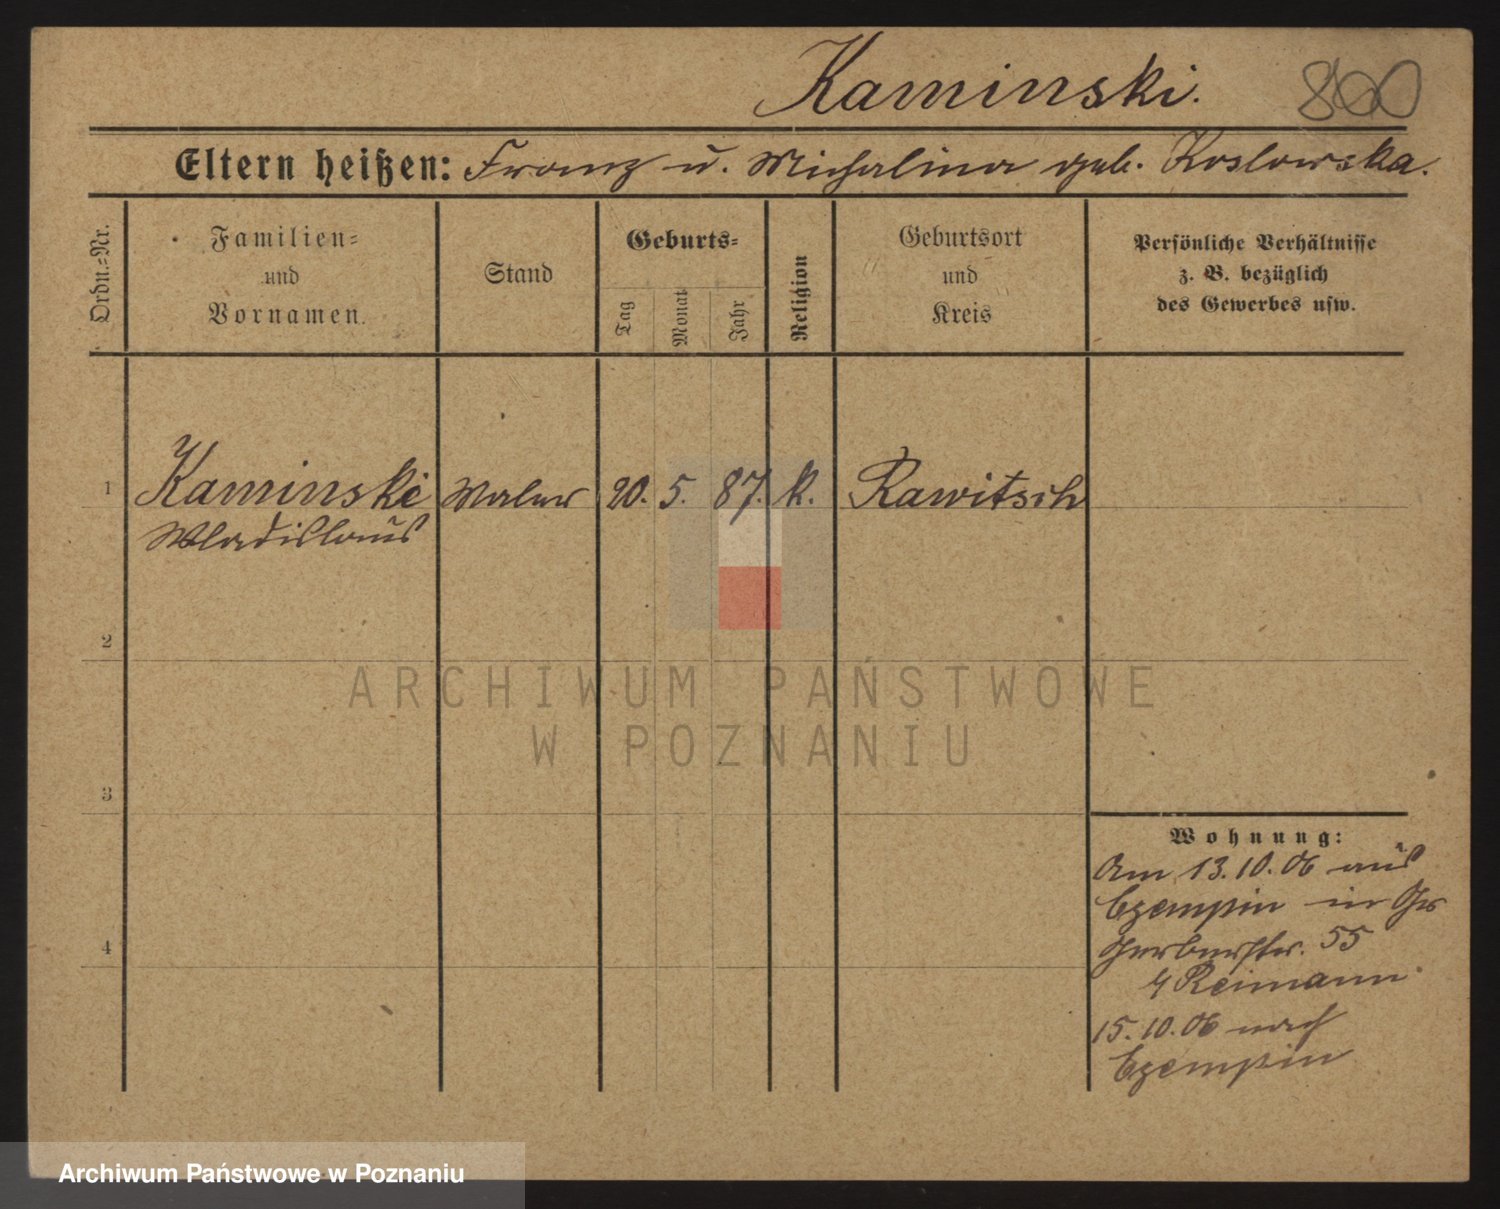 Kaminski. 800
Eltern heißen: Franz u. Michalina geb. Koslowska.
Ordn.=Nr.
Familien=
und
Vornamen.
Stand
Geburts=
Tag
Monat
Jahr
Religion
Geburtsort
und
Kreis
Persönliche Verhältnisse
z. B. bezüglich
des Gewerbes usw.
1 Kaminski Maler 20. 5. 87. k. Rawitsch
Wladislaus
2
3
4
Wohnung:
Am 13.10.06 aus
Czempin in
Gerberstr. 55
Reimann
15.10.06 nach
Czempin
ARCHIWUM PAŃSTWOWE
W POZNANIU
Archiwum Państwowe w Poznaniu